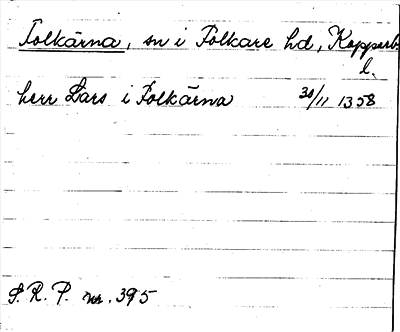 Folkärna, sn i Folkare hd, Kopparb.
l.
herr Lars i Folkärna 30/11 1358
S.R.P. nr. 395